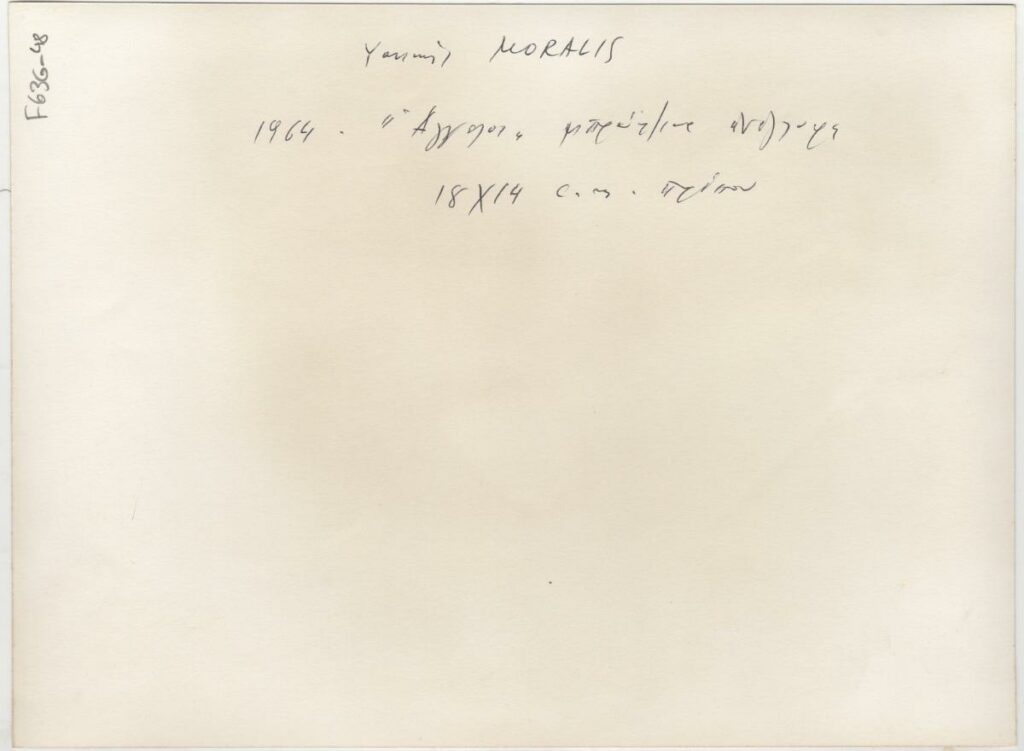 F636-48
Yannis MORALIS
1964. "Άγγελοι" μπρούτζινο ανάγλυφο
18X14 c.m.